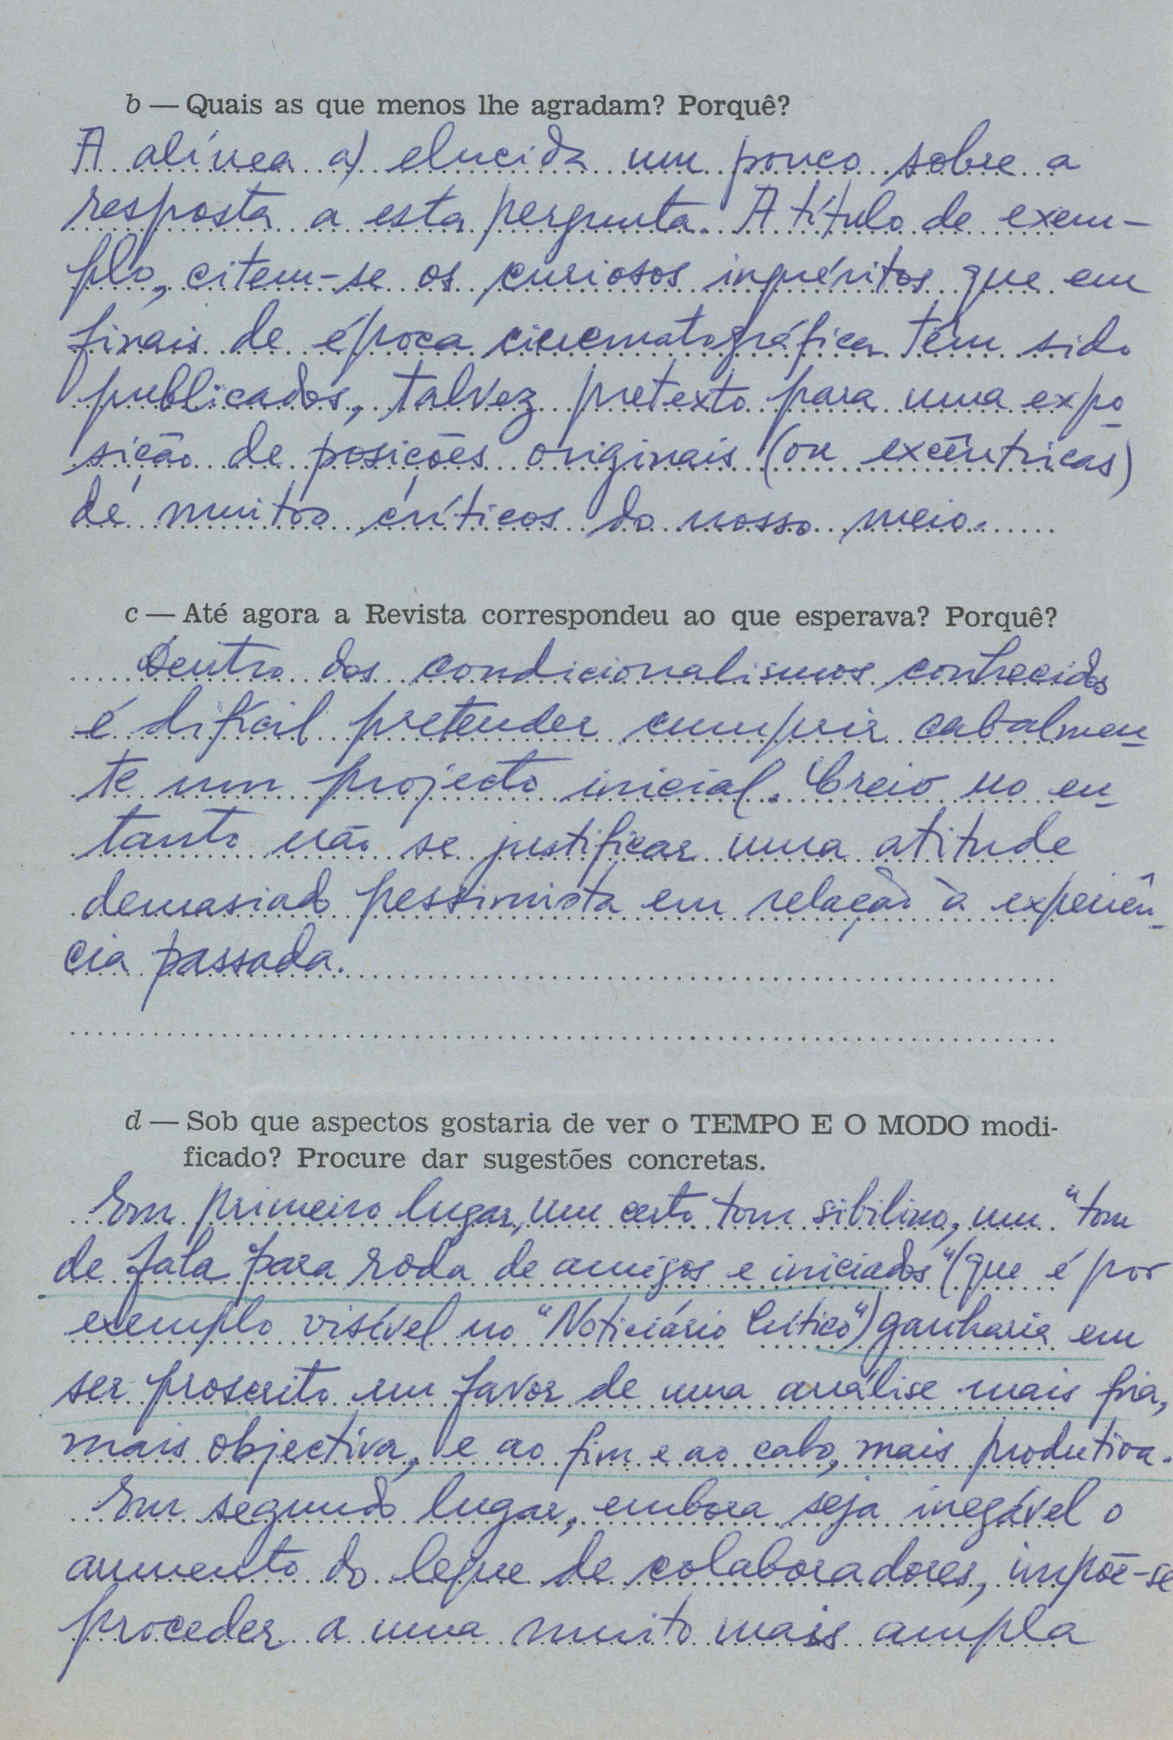 b — Quais as que menos lhe agradam? Porquê?
A alínea a) elucida um pouco sobre a
resposta a esta pergunta. A título de exem-
plo, citem-se os curiosos inquéritos que em
finais de época cinematográfica têm sido
publicados, talvez pretexto para uma expo
sição de posições originais (ou excêntricas)
de muitos críticos do nosso meio.
c — Até agora a Revista correspondeu ao que esperava? Porquê?
Dentro dos condicionalismos conhecidos
é difícil pretender cumprir cabalmen-
te um projecto inicial. Creio no en-
tanto não se justificar uma atitude
demasiado pessimista em relação à experiên-
cia passada.
d — Sob que aspectos gostaria de ver o TEMPO E O MODO modi-
ficado? Procure dar sugestões concretas.
Em primeiro lugar, um certo tom sibilino, um "tom
de fala para roda de amigos e iniciados" (que é por
exemplo visível no "Noticiário Crítico") ganharia em
ser proscrito em favor de uma análise mais fria,
mais objectiva, e ao fim e ao cabo, mais produtiva.
Em segundo lugar, embora seja inegável o
aumento do leque de colaboradores, impõe-se
proceder a uma muito mais ampla